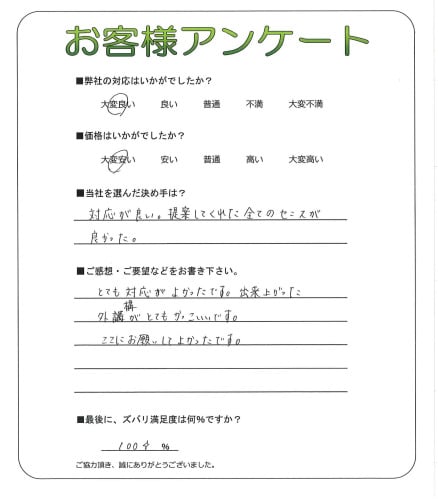 お客様アンケート
■弊社の対応はいかがでしたか?
大変良い 良い 普通 不満 大変不満
■価格はいかがでしたか?
大変安い 安い 普通 高い 大変高い
■当社を選んだ決め手は?
対応が良い。提案してくれた全てのセンスが
良かった。
■ご感想・ご要望などをお書き下さい。
とても対応がよかったです。出来上がった
外構がとてもかっこいいです。
ここにお願いしてよかったです。
■最後に、ズバリ満足度は何%ですか?
100 %
ご協力頂き、誠にありがとうございました。